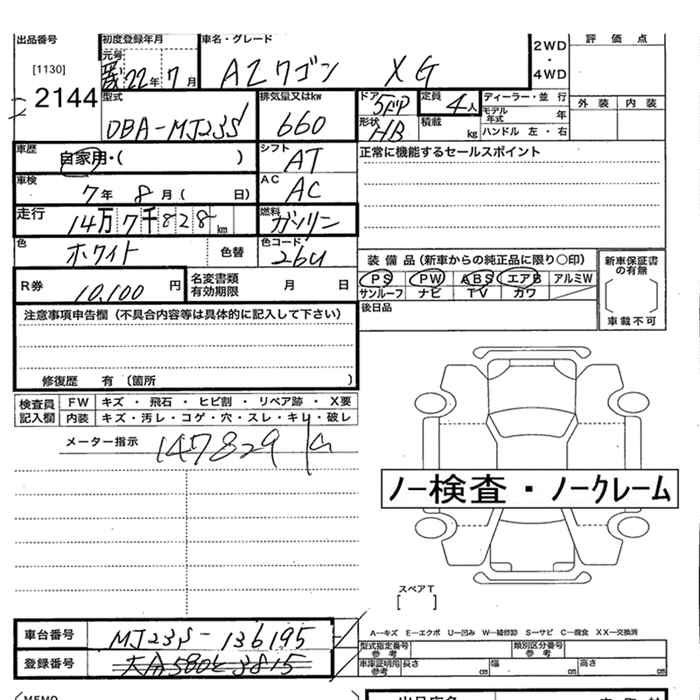 出品番号 初度登録年月 車名・グレード 評価点
元号 2WD・4WD
[1130] 22年 7月 AZワゴン XG 外装 内装
2144 型式 排気量又はkw ドア 定員 ディーラー・並行
DBA-MJ23S 660 5ドア 4人 モデル年式 年
形状 HB 積載 kg ハンドル 左・右
車歴 自家用・( ) シフト AT 正常に機能するセールスポイント
車検 7年 8月( 日) AC AC
走行 14万7千828km 燃料 ガソリン
色 ホワイト 色替 色コード 26U 装備品(新車からの純正品に限り○印) 新車保証書の有無
R券 10,100円 名変書類有効期限 月 日 PS PW ABS エアB アルミW
サンルーフ ナビ TV カワ 車載不可
注意事項申告欄(不具合内容等は具体的に記入して下さい) 後日品
修復歴 有 〔箇所 〕
検査員記入欄 FW キズ・飛石・ヒビ割・リペア跡・X要
内装 キズ・汚レ・コゲ・穴・スレ・キレ・破レ
メーター指示 147829
ノー検査・ノークレーム
スペアT
[ ]
車台番号 MJ23S-136195 A-キズ E-エクボ U-凹み W-補修跡 S-サビ C-腐食 XX-交換済
型式指定番号 参考 類別区分番号 参考
登録番号 車庫証明用 参考 長さ cm 幅 cm 高さ cm
MEMO 出品店名